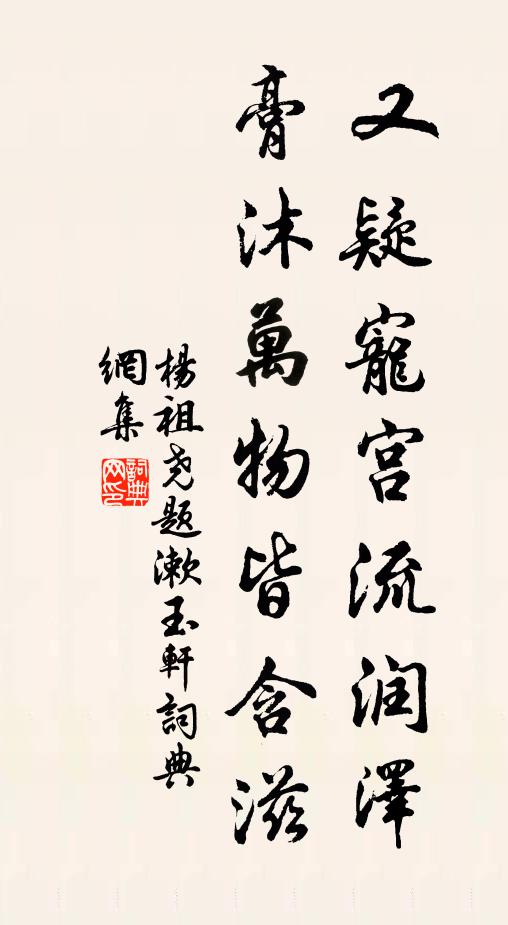 又疑寵宫流润澤
膏沐萬物皆含滋
楊祖尧題漱玉軒詞典
網集
詞典
网印